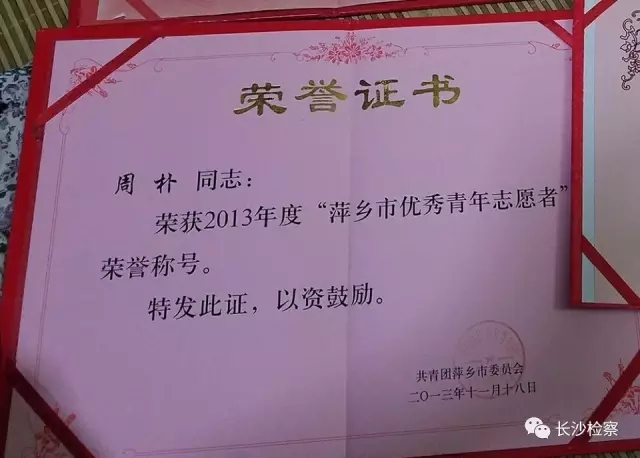 荣誉证书
周朴 同志：
荣获2013年度“萍乡市优秀青年志愿者”
荣誉称号。
特发此证，以资鼓励。
共青团萍乡市委员会
二〇一三年十一月十八日
长沙检察